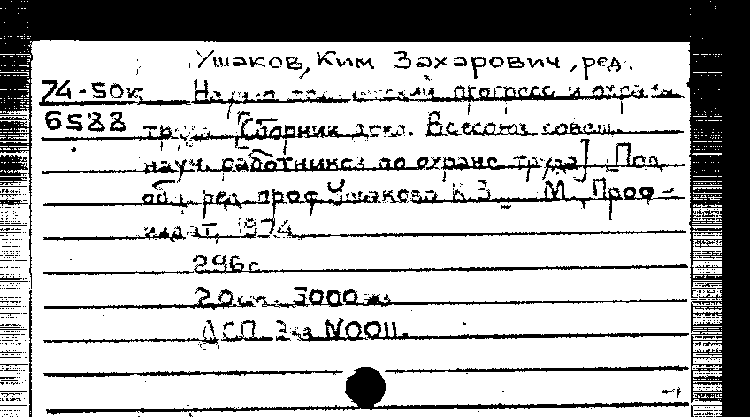 Ушаков, Ким Захарович, ред.
74-50к Научно-технический прогресс и охрана
6588 труда [Сборник докл. Всесоюз. совещ.
науч. работников по охране труда] Под
общ. ред. проф. Ушакова К.З. _ М., Проф-
издат, 1974
296с.
20см. 3000экз
ДСП. Экз N0011.